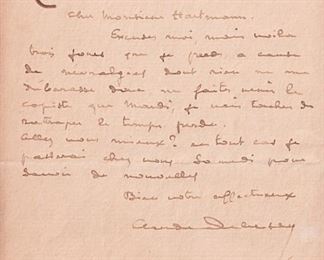 Cher Monsieur Hartmann.
Excusez moi, mais voilà
trois jours que je perds, à cause
de névralgies dont rien ne me
débarasse donc, ne faites venir le
copiste que Mardi, je vais tâcher de
rattraper le temps perdu.
Allez vous mieux? en tout cas je
passerai chez vous Samedi pour
savoir de nouvelles
Bien votre affectueux
Claude Debussy